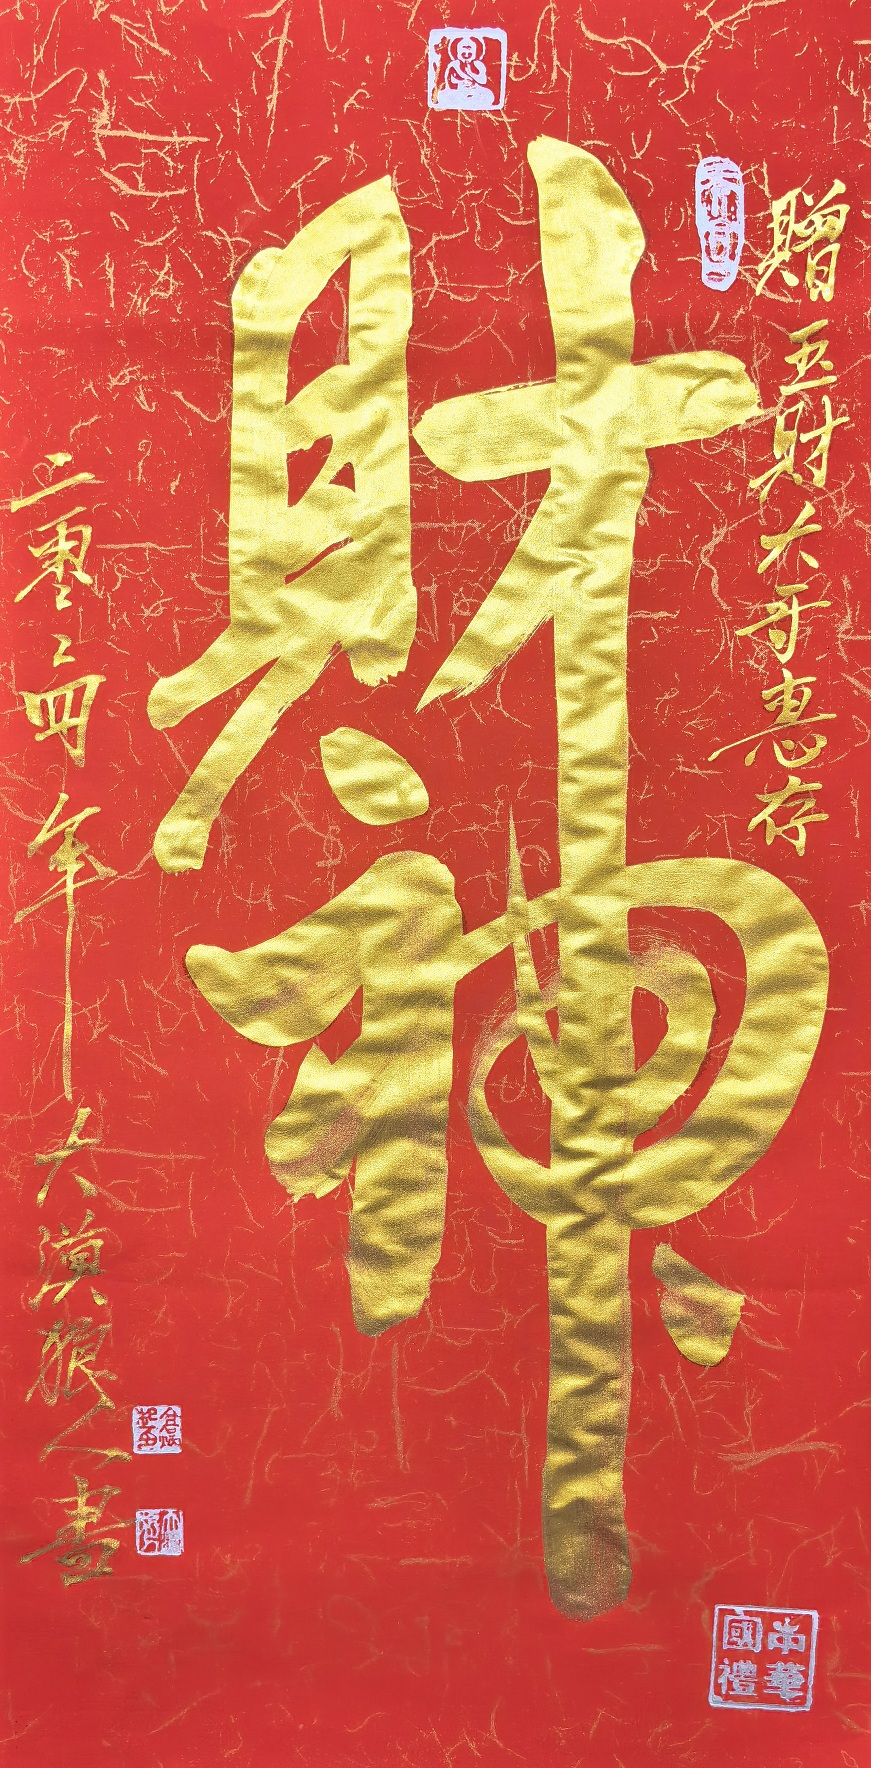 贈五財大哥惠存
財神
二零二四年大漠狼人書
中華國禮